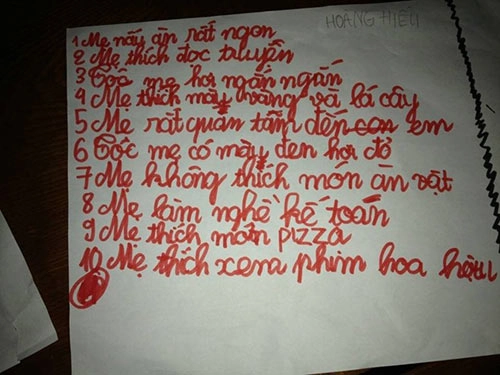 HOÀNG HIẾU
1 Mẹ nấu ăn rất ngon
2 Mẹ thích đọc truyện
3 Tóc mẹ hơi ngắn ngắn
4 Mẹ thích màu vàng và lá cây
5 Mẹ rất quan tâm đến con em
6 Tóc mẹ có mầy đen hơi đỏ
7 Mẹ không thích món ăn vặt
8 Mẹ làm nghề kế toán
9 Mẹ thích món pizza
10 Mẹ thích xem phim hoa